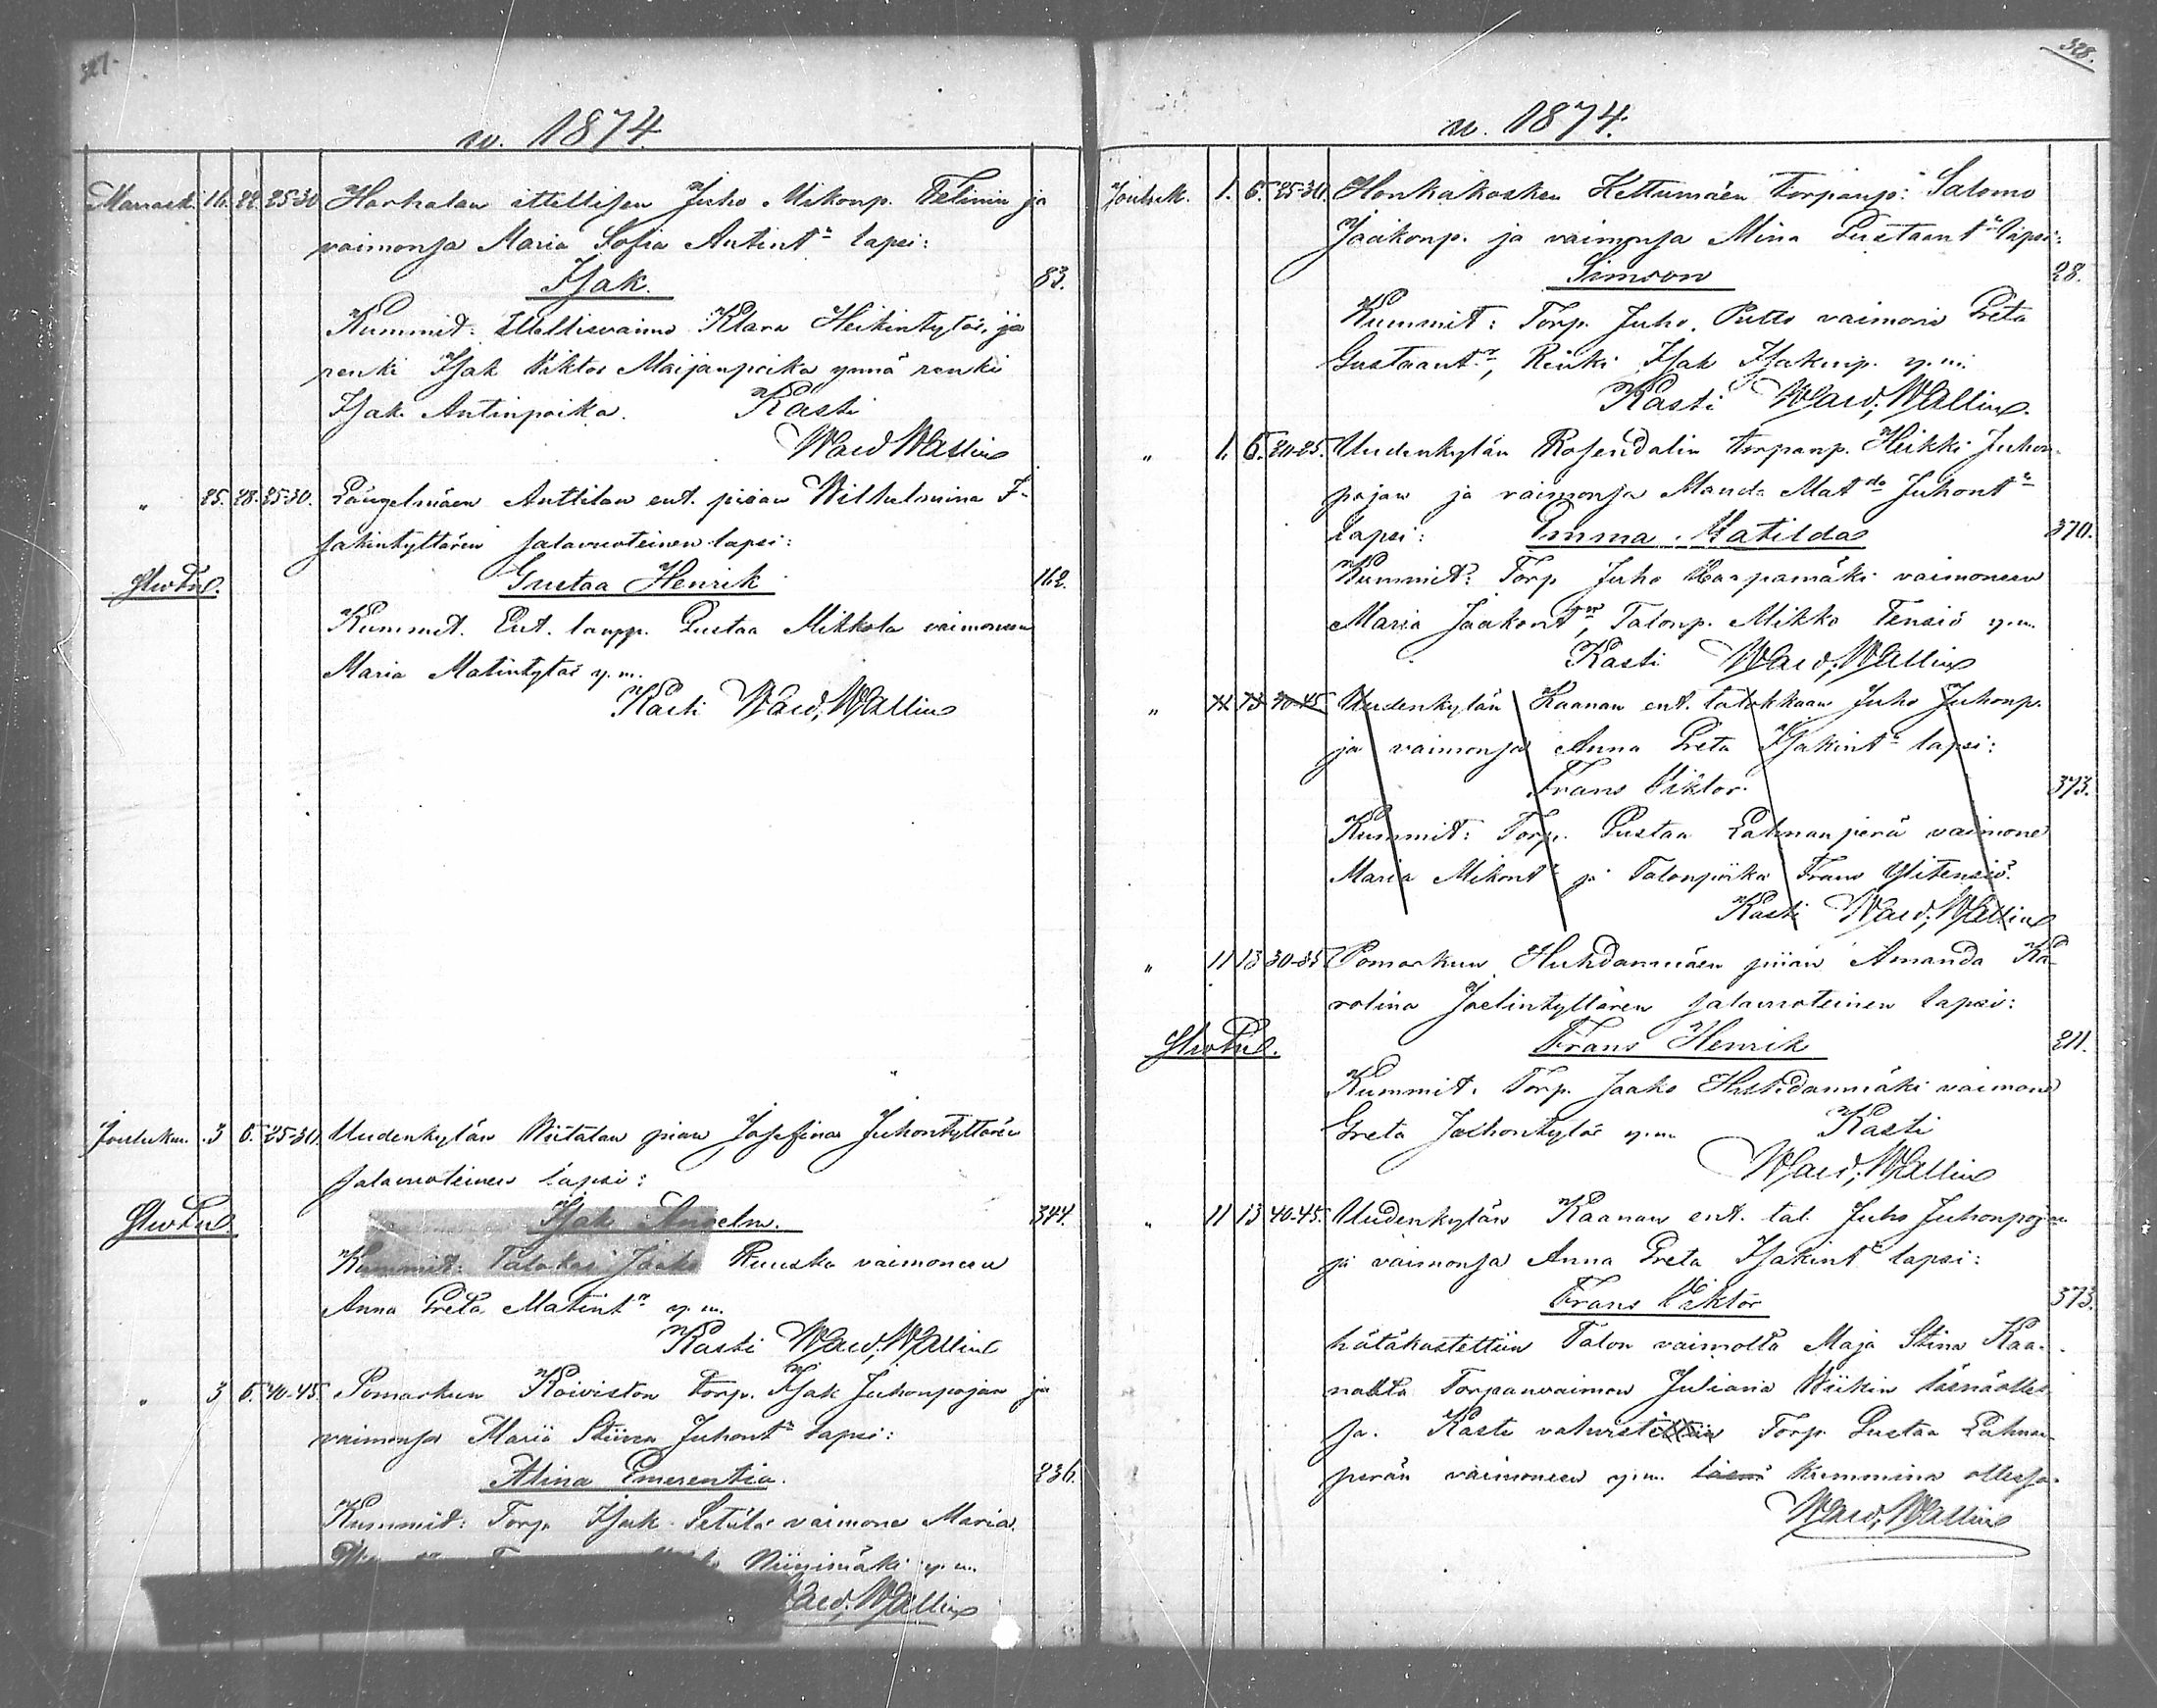 327.
w. 1874.
Marrask. 16. 22. 25-30 Harhalan ittellisen Juho Mikonp. Felinin ja
vaimonsa Maria Sofia Antint:r lapsi:
Isak. 83.
Kummit: Ittellisvaimo Klara Heikintytär, ja
renki Isak Viktor Maijanpoika ynnä renki
Isak Antinpoika. Kasti
Ward Wallin
" 25. 28. 25-30. Längelmäen Anttilan ent. piian Wilhelmina I-
sakintyttären salavuoteinen lapsi:
Gustaa Henrik 162.
Kummit. Ent. lampp. Gustaa Mikkola vaimoneen
Maria Matintytär y.m.
Kasti Ward. Wallin
Jouluku. 3 6. 25-30. Uudenkylän Niitalan piian Josefina Juhontyttären
salavuoteinen lapsi:
Isak Anselm. 344.
Kummit: Talokas Jaako Ruuska vaimoneen
Anna Greta Matint:r y.m.
Kasti Ward. Wallin
" 3 6. 40-45. Pomarkun Koiviston torp. Isak Juhonpojan ja
vaimonsa Maria Stiina Juhont:r lapsi:
Alina Emerentia. 236.
Kummit: Torp. Isak Setälä vaimone Maria
Niinimäki y.m.
Ward. Wallin
328.
w. 1874.
Jouluk. 1. 6. 25-30. Honkakosken Kettumäen torpanp: Salomo
Jaakonp. ja vaimonsa Mina Gustaant:r lapsi:
Simson 28.
Kummit: Torp. Juho Putto vaimone Greta
Gustaant:r, Renki Isak Isakinp. y.m.
Kasti Ward. Wallin.
" 1. 6. 20-25. Uudenkylän Rosendalin torpanp. Heikki Juhon
pojan ja vaimonsa Manda Mat:da Juhont:r
lapsi: Emma Matilda 370.
Kummit: Torp Juho Haapamäki vaimoneen
Maria Jaakont:r, Talonp. Mikko Tensiö y.m.
Kasti Ward. Wallin
" 11 13 40-45 Uudenkylän Kaanan ent. talokkaan Juho Juhonp.
ja vaimonsa Anna Greta Isakint:r lapsi:
Frans Viktor. 373.
Kummit: Torp. Gustaa Lahnanperä vaimone
Maria Mikont:r ja Talonpoika Frans Ylitensiö.
Kasti Ward. Wallin
" 11 13 30-35 Pomarkun Huhdanmäen piian Amanda Ka-
rolina Joelintyttären salavuoteinen lapsi:
Frans Henrik 211.
Kummit. Torp. Jaako Huhdanmäki vaimone
Greta Juhontytär y.m. Kasti
Ward. Wallin
" 11 13 40-45. Uudenkylän Kaanan ent. tal. Juho Juhonpojan
ja vaimonsa Anna Greta Isakint:r lapsi:
Frans Viktor 373.
hätäkastettiin Talon vaimolta Maja Stina Kaa-
nalta Torpanvaimon Juliana Niikin läsnäolles-
sa. Kaste vahvistettiin Torp. Gustaa Lahnan-
perän vaimoneen y.m. läsnä kummina ollessa.
Ward. Wallin